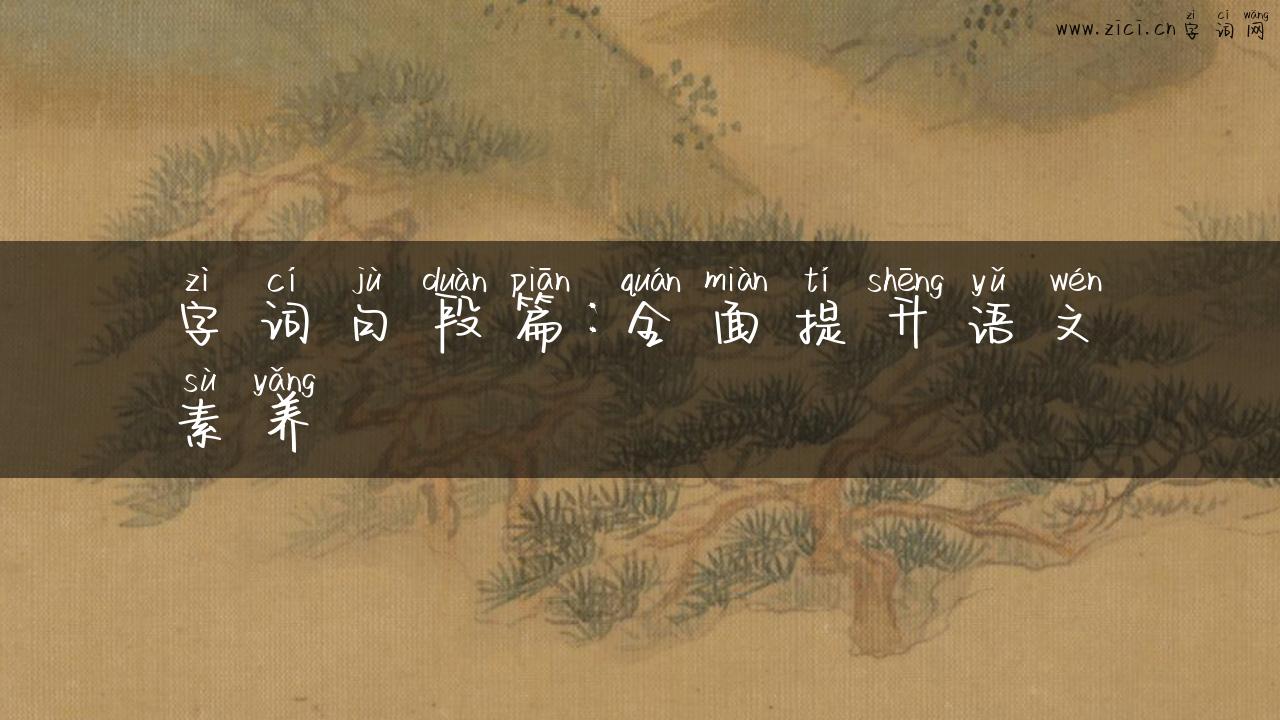 zì cí wǎng
www.zici.cn 字词网
zì cí jù duàn piān quán miàn tí shēng yǔ wén
字词句段篇:全面提升语文
sù yǎng
素养